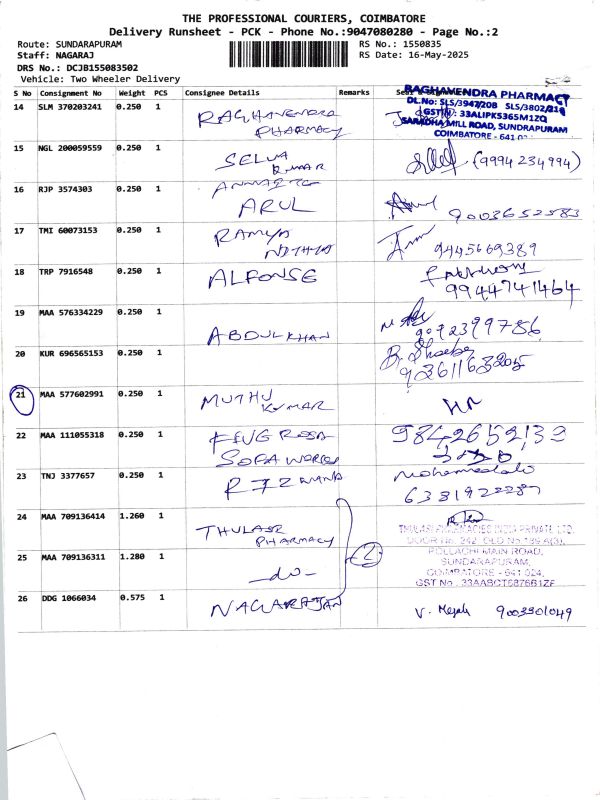 THE PROFESSIONAL COURIERS, COIMBATORE
Delivery Runsheet - PCK - Phone No.:9047080280 - Page No.:2
Route: SUNDARAPURAM
Staff: NAGARAJ
DRS No.: DCJB155083502
Vehicle: Two Wheeler Delivery
RS No.: 1550835
RS Date: 16-May-2025
S No Consignment No Weight PCS Consignee Details Remarks
14 SLM 370203241 0.250 1 RAGHAVENDRA
PHARMACY
RAGHAVENDRA PHARMACY
DL.No: SLS/3947/20B SLS/3802/21B
GSTIN: 33ALIPK5365M1ZQ
SARADHA MILL ROAD, SUNDRAPURAM
COIMBATORE - 641 024
15 NGL 200059559 0.250 1 SELVA
KUMAR (9994234994)
16 RJP 3574303 0.250 1
ARUL 9003652583
17 TMI 60073153 0.250 1 RAMYA
NITHYA 9445669389
18 TRP 7916548 0.250 1 ALFONSE
9944741464
19 MAA 576334229 0.250 1
ABDULKHAN 9092399786
20 KUR 696565153 0.250 1
21 MAA 577602991 0.250 1 MUTHU
KUMAR
22 MAA 111055318 0.250 1
SOFA WORKS
23 TNJ 3377657 0.250 1 RIZWANA
24 MAA 709136414 1.260 1 THULASI
PHARMACY
THULASI PHARMACIES INDIA PRIVATE LTD.
DOOR No. 242, OLD No.189 A(3),
POLLACHI MAIN ROAD,
SUNDARAPURAM,
COIMBATORE - 641 024.
25 MAA 709136311 1.280 1 -do- 2
26 DDG 1066034 0.575 1 NAGARAJAN